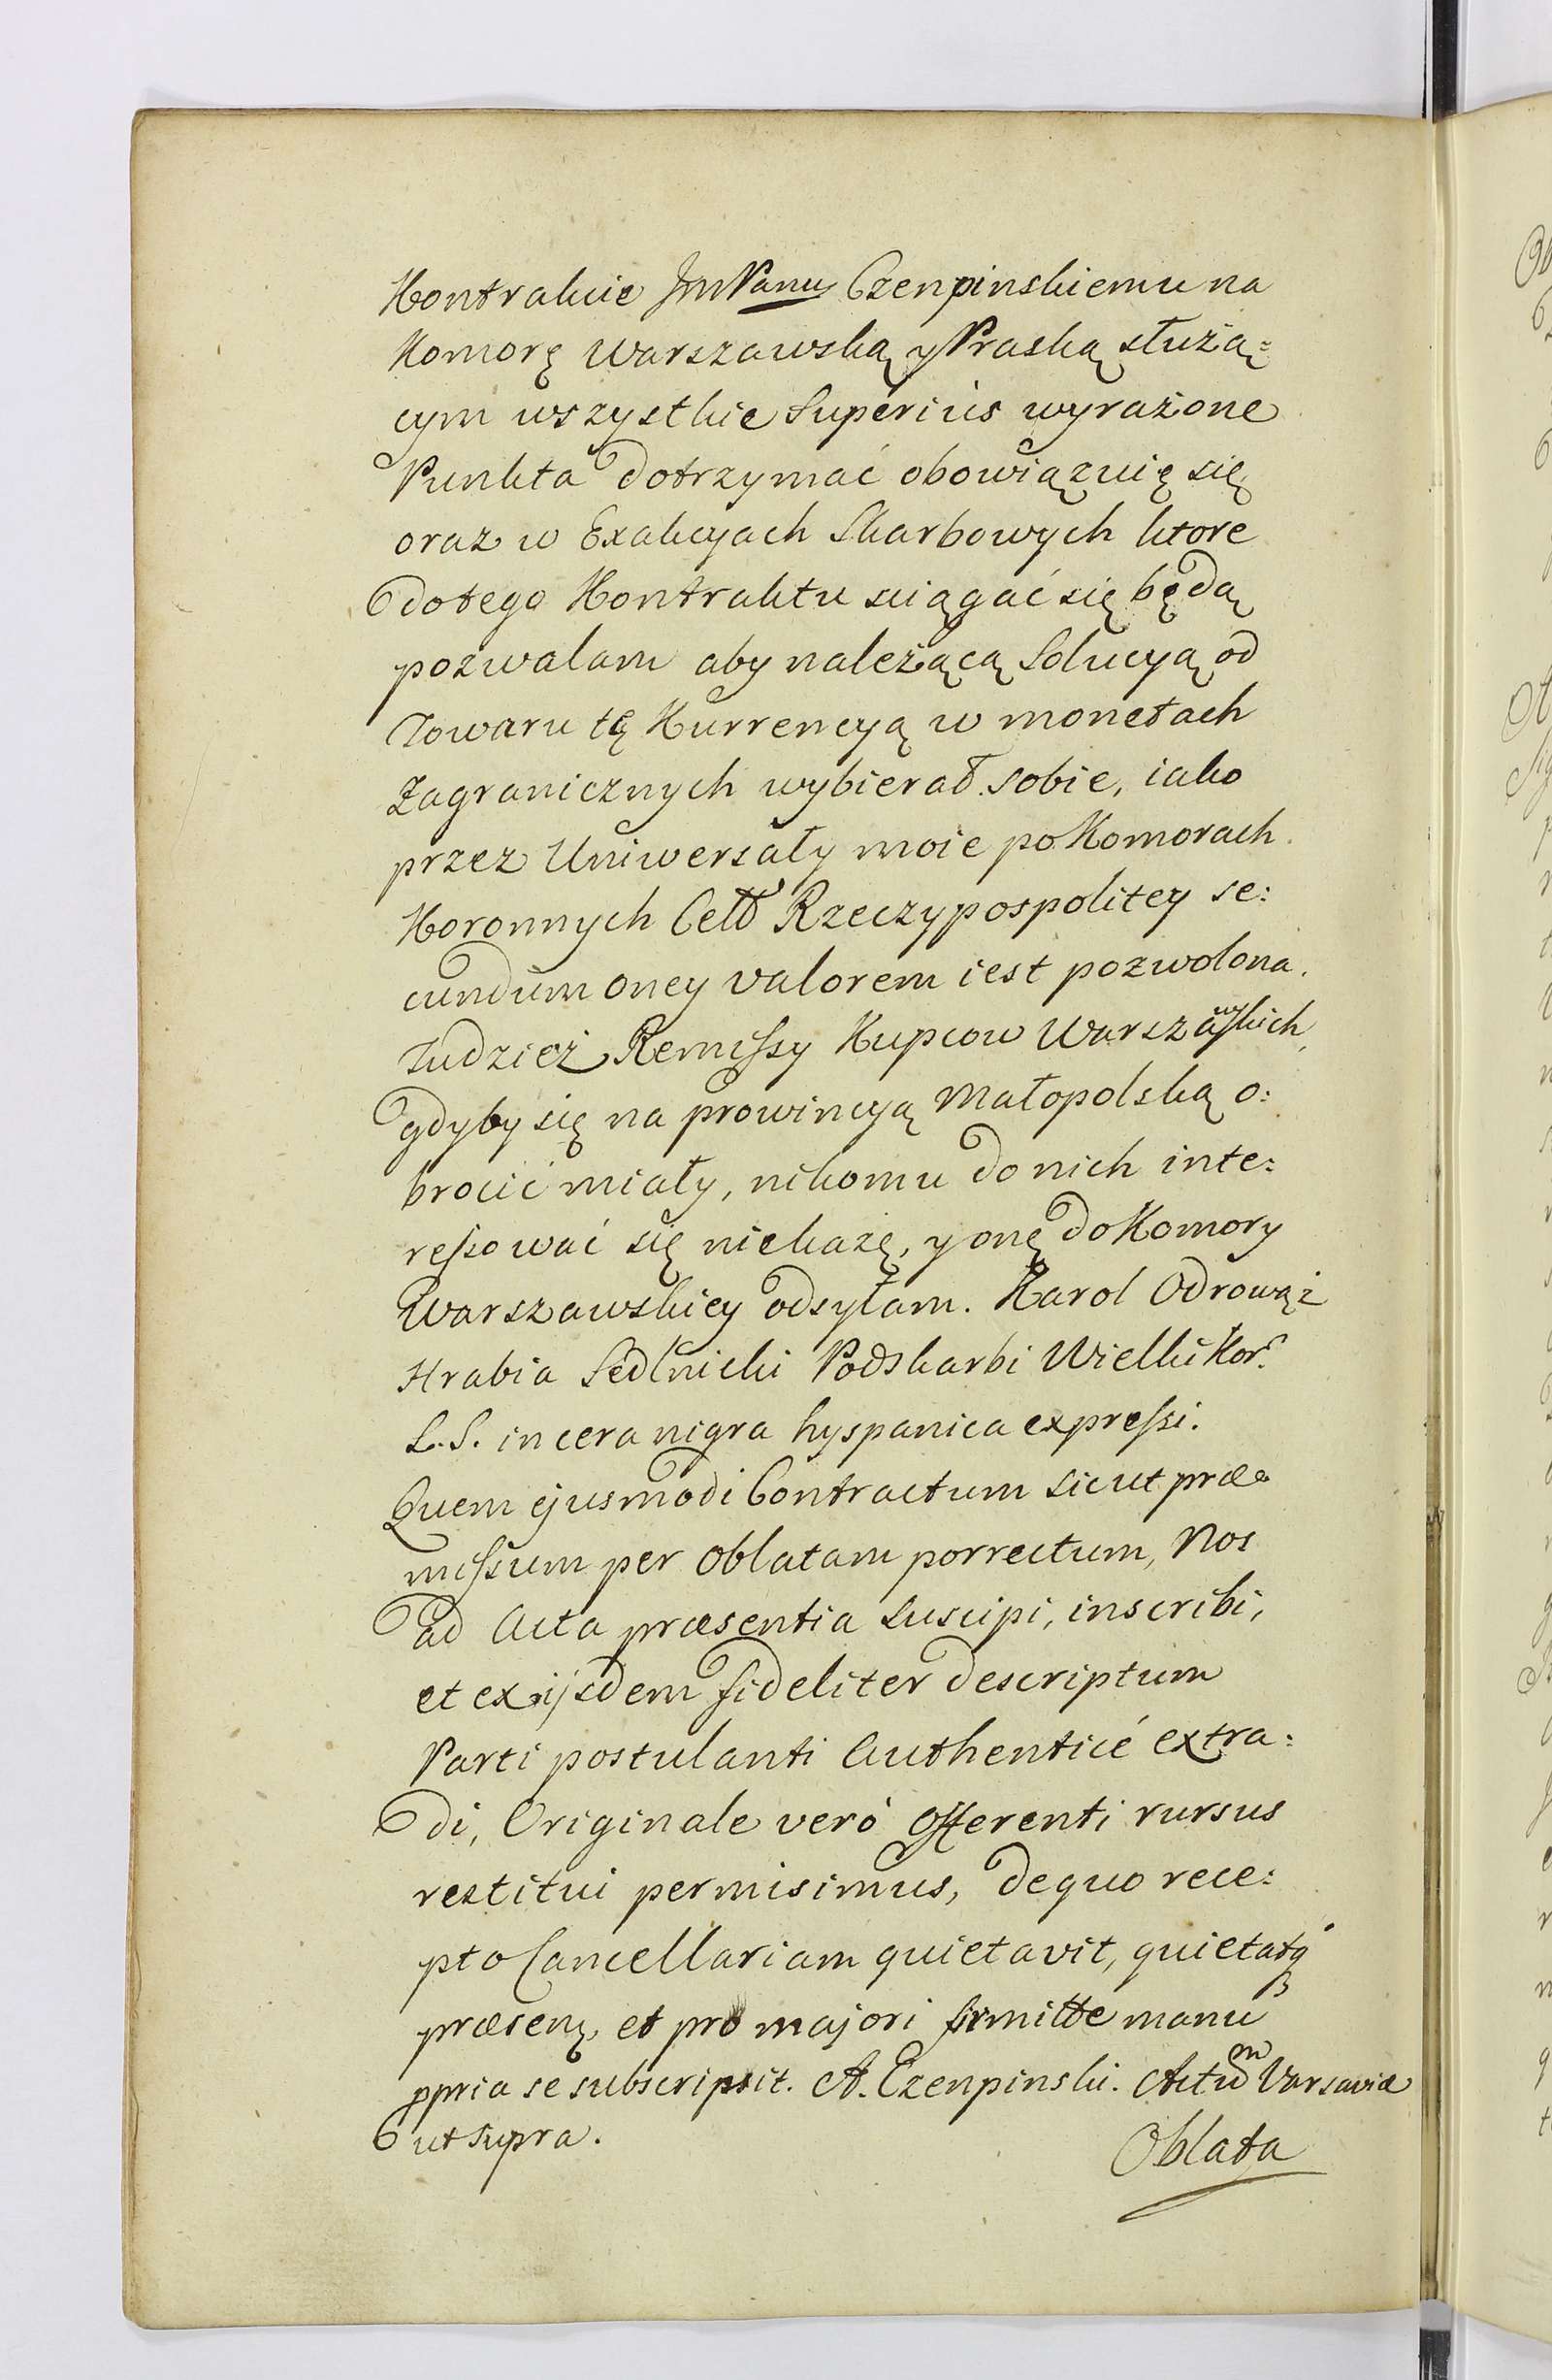 Kontrakcie JmPanu Czenpinskiemu na
Komorę Warszawską y Praską służą:
cym wszystkie Superiús wyrażone
Punkta dotrzymać obowiązuię się,
oraz w Exakcyach Skarbowych ktore
do tego Kontraktu sciągać się będą
pozwalam aby należącą Solucyą od
Towaru tę Kurrencyą w monetach
Zagranicznych wybierał sobie, iako
przez Uniwersały moie po Komorach
Koronnych Cełł Rzeczypospolitey se:
cundum oney valorem iest pozwolona.
Tudzież Remissy Kupcow Warszawskich,
gdyby się na prowincyą Małopolską o:
brocić miały, nikomu do nich inte:
ressować się niekażę, y onę do Komory
Warszawskiey odsyłam. Karol Odrowąż
Hrabia Sedlnicki Podskarbi Wielki Kor:
L. S. in cera nigra hyspanica expressi.
Quem ejusmodi Contractum sicut præ
missum per Oblatam porrectum, Nos
ad Acta præsentia suscipi, inscribi,
et ex ijsdem fideliter descriptum
Parti postulanti Authenticé extra:
di, Originale veró Offerenti rursus
restitui permisimus, de quo rece:
pto Cancellariam quietavit, quietatq́
præsenę, et pro majori firmitte manu
ppria se subscripsit. A. Czenpinski. Actum Varsaviæ
ut supra.
Oblata